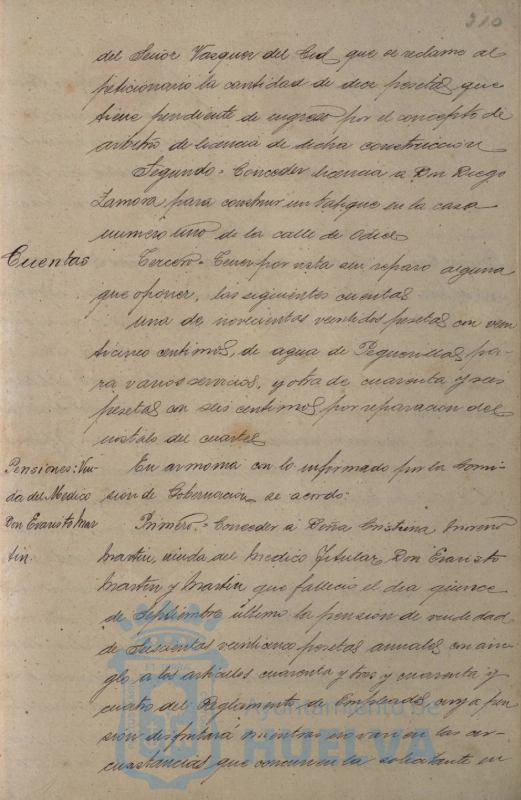 210
del Señor Vazquez del Cid que se reclame al
peticionario la cantidad de diez pesetas que
tiene pendiente de ingreso por el concepto de
arbitrio de licencia de dicha construccion
Segundo.- Conceder licencia a Don Diego
Zamora para construir un tabique en la casa
numero uno de la calle de Odiel
Cuentas
Tercero.- Tener por vista sin reparo alguno
que oponer, las siguientes cuentas
Una de novecientas veintidos pesetas con vein
ticinco centimos, de agua de Peguerillas, pa-
ra varios servicios, y otra de cuarenta y seis
pesetas con seis centimos, por reparacion del
del cuartel
Pensiones: Viu-
da del Medico
Don Evaristo Mar
tin.
En armonia con lo informado por la Comi-
sion de Gobernacion, se acordo:
Primero.- Conceder á Doña Cristina Moreno
Martin, viuda del Medico Titular, Don Evaristo
Martin y Martin que fallecio el dia quince
de Septiembre último la pension de viudedad
de veinticinco pesetas anuales con arre-
glo a los articulos cuarenta y tres y cuarenta y
cuatro del Reglamento de Empleados, cuya pen
sion disfrutará mientras no varien las cir-
cunstancias que concurren la solicitante en
Ayuntamiento de
HUELVA